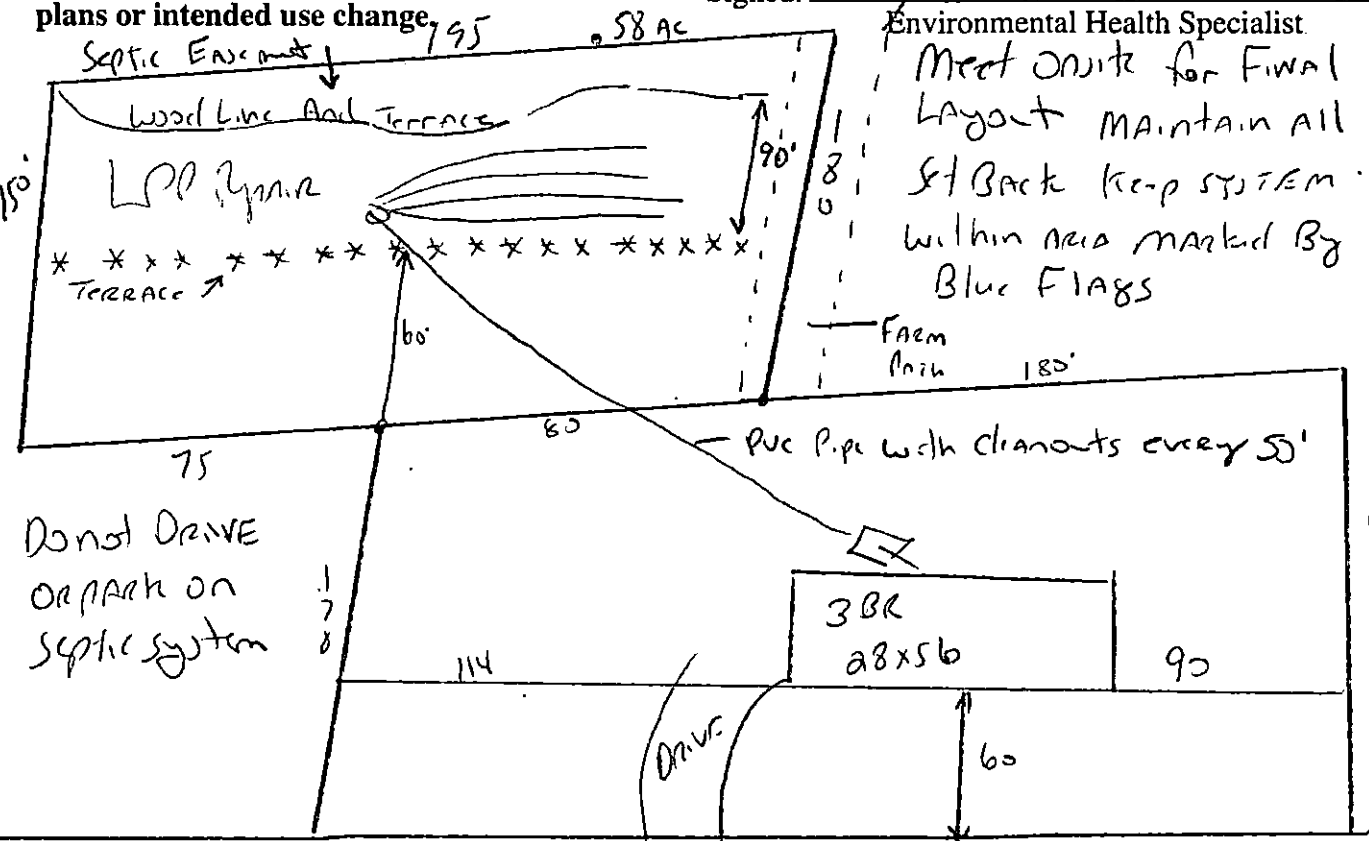 plans or intended use change.
Signed:
Environmental Health Specialist
Septic Easement
195
.58 AC
Meet Onsite for Final
Layout Maintain All
Set Back Keep System
within Area Marked By
Blue Flags
Wood Line And Terrace
150'
LPP Repair
90'
180
TERRACE
60'
Farm
Path
180'
80
PVC Pipe with cleanouts every 50'
75
Do not DRIVE
OR PARK on
Septic system
178
3 BR
28x56
114
90
DRIVE
60